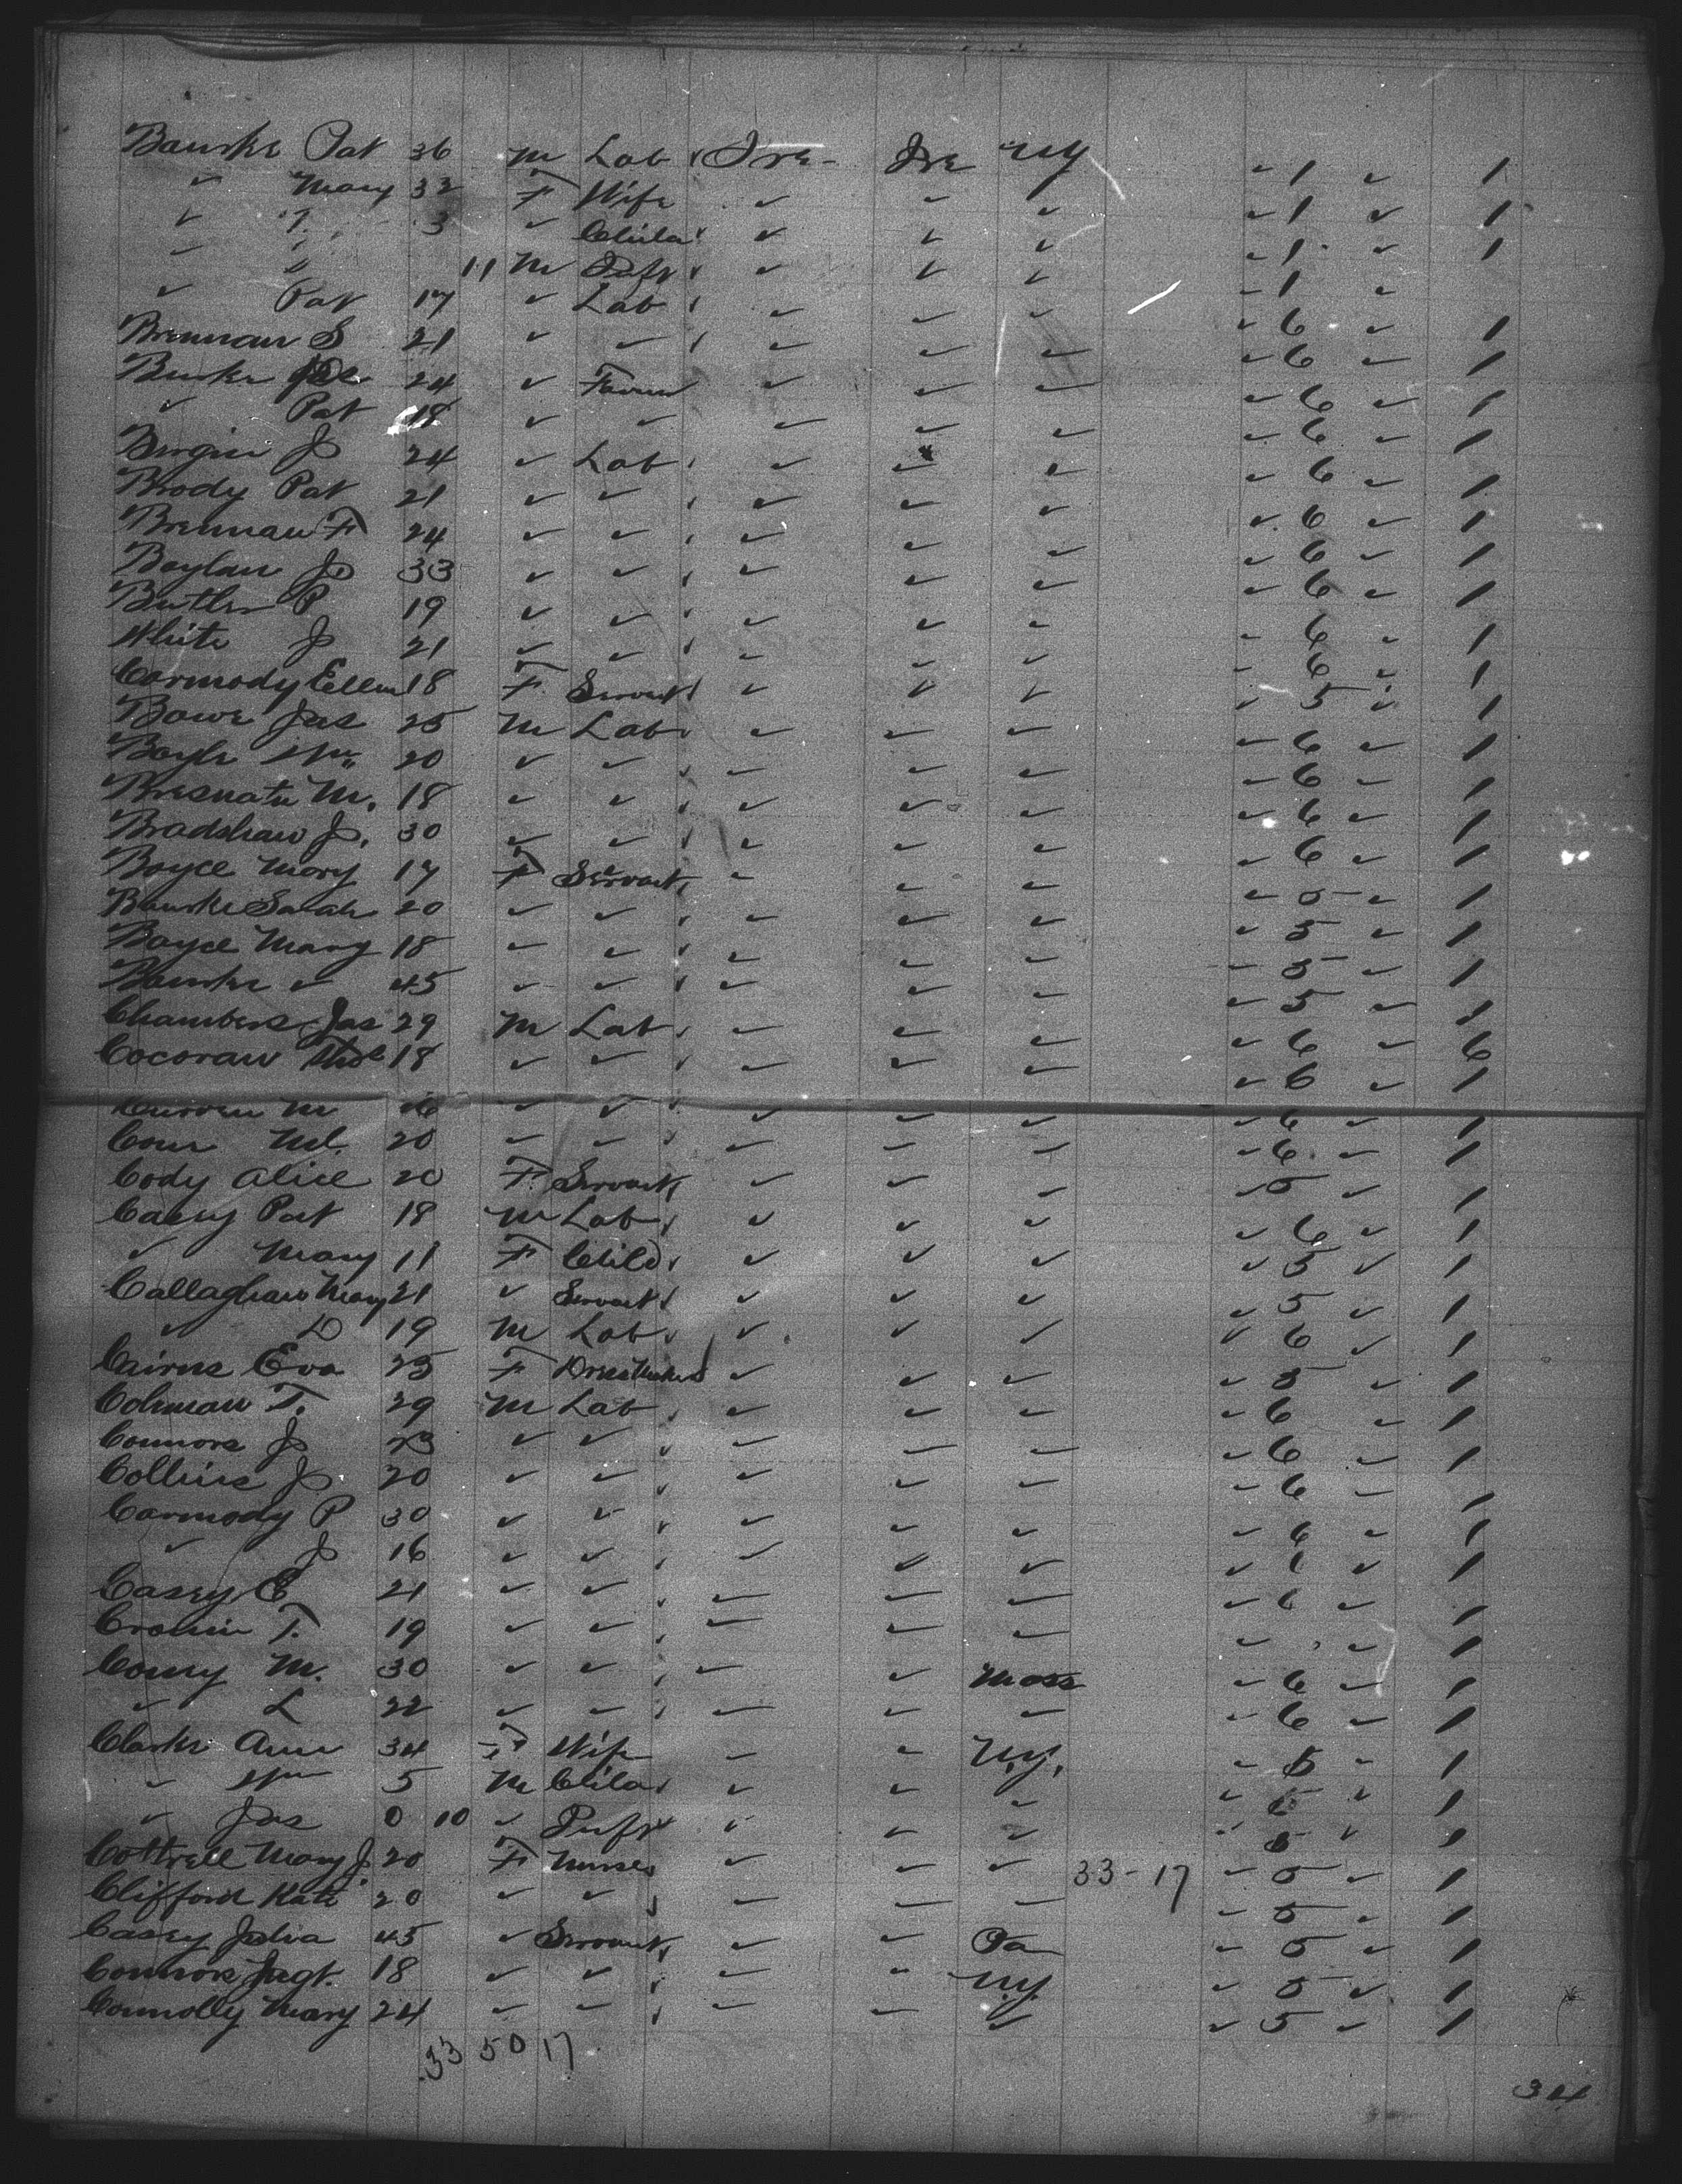 Bourke Pat 36 M Lab Ire- Ire NY ✓ 1 ✓ 1
✓ Mary 32 F Wife ✓ ✓ ✓ ✓ 1 ✓ 1
✓ T. 3 ✓ Child ✓ ✓ ✓ ✓ 1 ✓ 1
✓ 11 M Inft ✓ ✓ ✓ ✓ 1 ✓
✓ Pat 17 ✓ Lab ✓ ✓ ✓ ✓ 6 ✓ 1
Brennan S 21 ✓ ✓ ✓ ✓ ✓ ✓ 6 ✓ 1
Burke 24 ✓ Farmr ✓ ✓ ✓ ✓ 6 ✓ 1
✓ Pat 18 ✓ ✓ ✓ ✓ ✓ ✓ 6 ✓ 1
Bergin J 24 ✓ Lab ✓ ✓ ✓ ✓ 6 ✓ 1
Brody Pat 21 ✓ ✓ ✓ ✓ ✓ ✓ 6 ✓ 1
Brennan F 24 ✓ ✓ ✓ ✓ ✓ ✓ 6 ✓ 1
Boylan J 33 ✓ ✓ ✓ ✓ ✓ ✓ 6 ✓ 1
Butler P 19 ✓ ✓ ✓ ✓ ✓ ✓ 6 ✓ 1
White J 21 ✓ ✓ ✓ ✓ ✓ ✓ 6 ✓ 1
Cormody Ellen 18 F Servant ✓ ✓ ✓ ✓ 5 ✓ 1
Bowe Jas 25 M Lab ✓ ✓ ✓ ✓ 6 ✓ 1
Boyle Wm 20 ✓ ✓ ✓ ✓ ✓ ✓ 6 ✓ 1
Bresnatn M. 18 ✓ ✓ ✓ ✓ ✓ ✓ 6 ✓ 1
Bradshaw J. 30 ✓ ✓ ✓ ✓ ✓ ✓ 6 ✓ 1
Boyce Mary 17 F Servant ✓ ✓ ✓ ✓ 5 ✓ 1
Bourke Sarah 20 ✓ ✓ ✓ ✓ ✓ ✓ 5 ✓ 1
Boyce Mary 18 ✓ ✓ ✓ ✓ ✓ ✓ 5 ✓ 1
Bourke ✓ 45 ✓ ✓ ✓ ✓ ✓ ✓ 5 ✓ 1
Chambers Jas 29 M Lab ✓ ✓ ✓ ✓ 6 ✓ 6
Cocoran 18 ✓ ✓ ✓ ✓ ✓ ✓ 6 ✓ 1
Curren M 26 ✓ ✓ ✓ ✓ ✓ ✓ 6 ✓ 1
Conr Ml. 20 ✓ ✓ ✓ ✓ ✓ ✓ 6 ✓ 1
Cody Alice 20 F. Servant ✓ ✓ ✓ ✓ 5 ✓ 1
Casey Pat 18 M Lab ✓ ✓ ✓ ✓ 6 ✓ 1
✓ Mary 11 F Child ✓ ✓ ✓ ✓ 5 ✓ 1
Callaghan Mary 21 ✓ Servant ✓ ✓ ✓ ✓ 5 ✓ 1
✓ D 19 M Lab ✓ ✓ ✓ ✓ 6 ✓ 1
Cairns Eva 25 F Dressmaker ✓ ✓ ✓ ✓ 5 ✓ 1
Colman T. 29 M Lab ✓ ✓ ✓ ✓ 6 ✓ 1
Connors J 23 ✓ ✓ ✓ ✓ ✓ ✓ 6 ✓ 1
Collins J 20 ✓ ✓ ✓ ✓ ✓ ✓ 6 ✓ 1
Carmody P 30 ✓ ✓ ✓ ✓ ✓ ✓ 6 ✓ 1
✓ J 16 ✓ ✓ ✓ ✓ ✓ ✓ 6 ✓ 1
Casey E 21 ✓ ✓ ✓ ✓ ✓ ✓ 6 ✓ 1
Cronin T. 19 ✓ ✓ ✓ ✓ ✓ ✓ ✓ 1
Conry M. 30 ✓ ✓ ✓ ✓ Mass ✓ 6 ✓ 1
✓ L 22 ✓ ✓ ✓ ✓ ✓ ✓ 6 ✓ 1
Clarke Ann 34 F Wife ✓ ✓ N.Y. ✓ 5 ✓ 1
✓ Wm 5 M Child ✓ ✓ ✓ ✓ ✓ 1
✓ Jas 0 10 ✓ Inft ✓ ✓ ✓ ✓ 5 ✓ 1
Cottrell Mary J. 20 F Nurse ✓ ✓ ✓ 33-17 ✓ 5 ✓ 1
Clifford Kate 20 ✓ ✓ ✓ ✓ ✓ ✓ 5 ✓ 1
Casey Julia 45 ✓ Servant ✓ ✓ Pa ✓ 5 ✓ 1
Connors Mgt. 18 ✓ ✓ ✓ ✓ N.Y. ✓ 5 ✓ 1
Connolly Mary 24 ✓ ✓ ✓ ✓ ✓ ✓ 5 ✓ 1
33 50 17
34